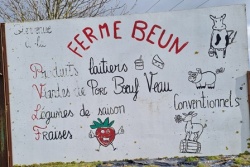 Bienvenue
à la
FERME BEUN
Produits laitiers
Viandes de Porc Bœuf Veau
Légumes de saison
Fraises
Conventionnels